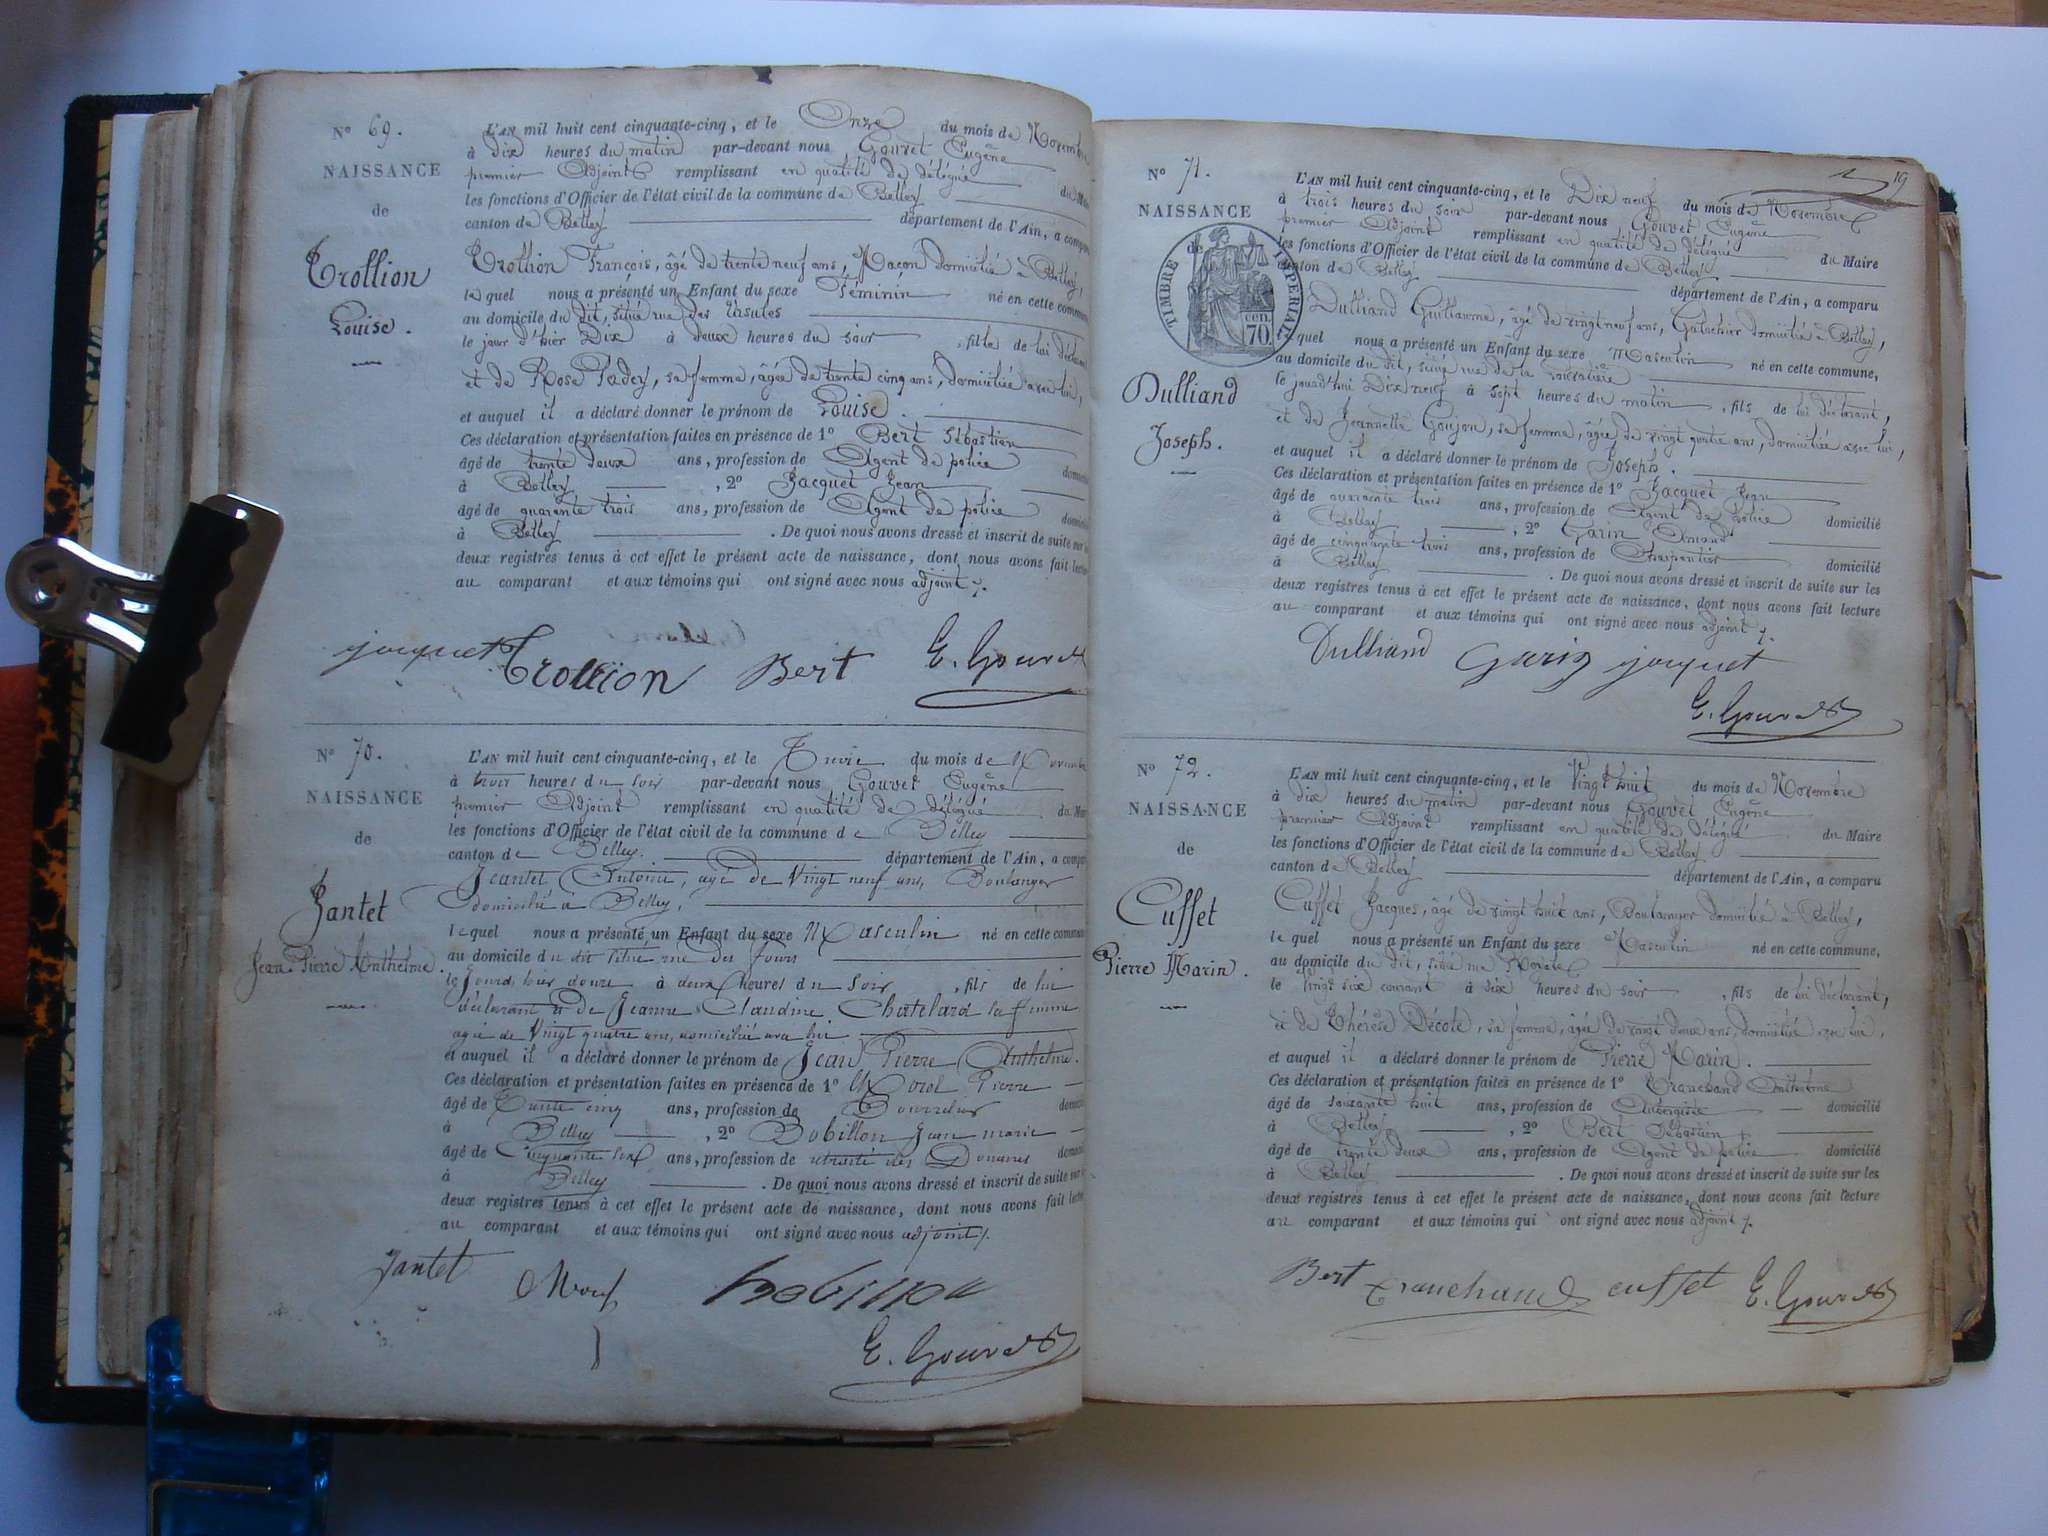 N° 69.
NAISSANCE
de
Trollion
Louise.
L'AN mil huit cent cinquante-cinq, et le Onze du mois de Novembre
à dix heures du matin par-devant nous Gouvet Eugène
premier Adjoint remplissant en qualité de délégué du Maire
les fonctions d'Officier de l'état civil de la commune de Belley
canton de Belley département de l'Ain, a comparu
Trollion François, âgé de trente neuf ans, Maçon domicilié à Belley,
lequel nous a présenté un Enfant du sexe féminin né en cette commune
au domicile du dit, situé rue des Ursules
le jour d'hier Dix à deux heures du soir, fille de lui déclarant
et de Rose Padey, sa femme, âgée de trente cinq ans, domiciliée avec lui,
et auquel il a déclaré donner le prénom de Louise.
Ces déclaration et présentation faites en présence de 1° Bert Sébastien
âgé de trente deux ans, profession de Agent de police domicilié
à Belley, 2° Jacquet Jean
âgé de quarante trois ans, profession de Agent de police domicilié
à Belley. De quoi nous avons dressé et inscrit de suite sur les
deux registres tenus à cet effet le présent acte de naissance, dont nous avons fait lecture
au comparant et aux témoins qui ont signé avec nous adjoint ./.
jacquet Trollion Bert E. Gouvet
N° 70.
NAISSANCE
de
Jantet
Jean Pierre Anthelme.
L'AN mil huit cent cinquante-cinq, et le Treize du mois de Novembre
à trois heures du soir par-devant nous Gouvet Eugène
premier Adjoint remplissant en qualité de délégué du Maire
les fonctions d'Officier de l'état civil de la commune de Belley
canton de Belley. département de l'Ain, a comparu
Jeantet Antoine, agé de Vingt neuf ans, Boulanger
domicilié à Belley,
lequel nous a présenté un Enfant du sexe Masculin né en cette commune
au domicile du dit situé rue des fours
le Jour d'hier douze à deux heures du soir, fils de lui
déclarant et de Jeanne Claudine Chatelard sa femme
agée de Vingt quatre ans, domiciliée avec lui
et auquel il a déclaré donner le prénom de Jean Pierre Anthelme.
Ces déclaration et présentation faites en présence de 1° Morel Pierre
âgé de Trente cinq ans, profession de Bourrelier domicilié
à Belley, 2° Bobillon Jean marie
âgé de Cinquante six ans, profession de retraité des Douanes domicilié
à Belley. De quoi nous avons dressé et inscrit de suite sur les
deux registres tenus à cet effet le présent acte de naissance, dont nous avons fait lecture
au comparant et aux témoins qui ont signé avec nous adjoint ./.
Jantet
E. Gouvet
19
N° 71.
NAISSANCE
de
TIMBRE IMPERIAL
70 cen.
Dulliand
Joseph.
L'AN mil huit cent cinquante-cinq, et le Dix neuf du mois de Novembre
à trois heures du soir par-devant nous Gouvet Eugène
premier Adjoint remplissant en qualité de délégué du Maire
les fonctions d'Officier de l'état civil de la commune de Belley
canton de Belley département de l'Ain, a comparu
Dulliand Guillaume, âgé de vingt neuf ans, Galochier domicilié à Belley,
lequel nous a présenté un Enfant du sexe Masculin né en cette commune,
au domicile du dit, situé rue de la
le jourd'hui Dix neuf à sept heures du matin, fils de lui déclarant,
et de Jeannette Goujon, sa femme, âgée de vingt quatre ans, domiciliée avec lui,
et auquel il a déclaré donner le prénom de Joseph.
Ces déclaration et présentation faites en présence de 1° Jacquet Jean
âgé de quarante trois ans, profession de Agent de Police domicilié
à Belley, 2° Garin
âgé de cinquante trois ans, profession de Charpentier domicilié
à Belley. De quoi nous avons dressé et inscrit de suite sur les
deux registres tenus à cet effet le présent acte de naissance, dont nous avons fait lecture
au comparant et aux témoins qui ont signé avec nous adjoint ./.
Dulliand Garin jacquet
E. Gouvet
N° 72.
NAISSANCE
de
Cuffet
Pierre Marin.
L'AN mil huit cent cinquante-cinq, et le Vingt huit du mois de Novembre
à dix heures du matin par-devant nous Gouvet Eugène
premier Adjoint remplissant en qualité de délégué du Maire
les fonctions d'Officier de l'état civil de la commune de Belley
canton de Belley département de l'Ain, a comparu
Cuffet Jacques, âgé de vingt huit ans, Boulanger domicilié à Belley,
lequel nous a présenté un Enfant du sexe Masculin né en cette commune,
au domicile du dit, situé rue
le Vingt six courant à six heures du soir, fils de lui déclarant,
et de Thérèse Décote, sa femme, âgée de deux ans, domiciliée avec lui,
et auquel il a déclaré donner le prénom de Pierre Marin.
Ces déclaration et présentation faites en présence de 1° Tranchand Anthelme
âgé de soixante huit ans, profession de Aubergiste domicilié
à Belley, 2° Bert Sébastien
âgé de trente deux ans, profession de Agent de police domicilié
à Belley. De quoi nous avons dressé et inscrit de suite sur les
deux registres tenus à cet effet le présent acte de naissance, dont nous avons fait lecture
au comparant et aux témoins qui ont signé avec nous adjoint ./.
Bert Tranchand cuffet E. Gouvet